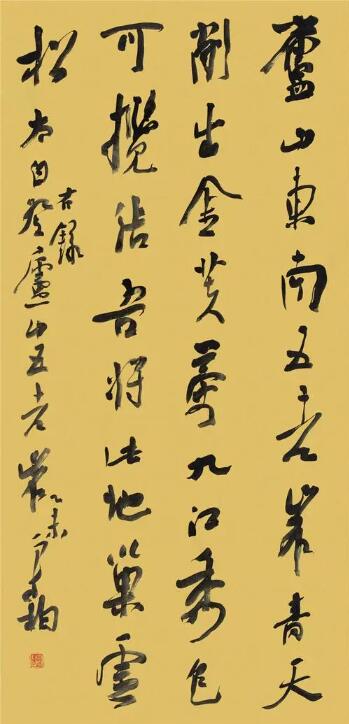 廬山東南五老峯青天
削出金芙蓉九江秀色
可攬結吾將此地巢雲
松
右錄
太白登廬山五老峯乙未